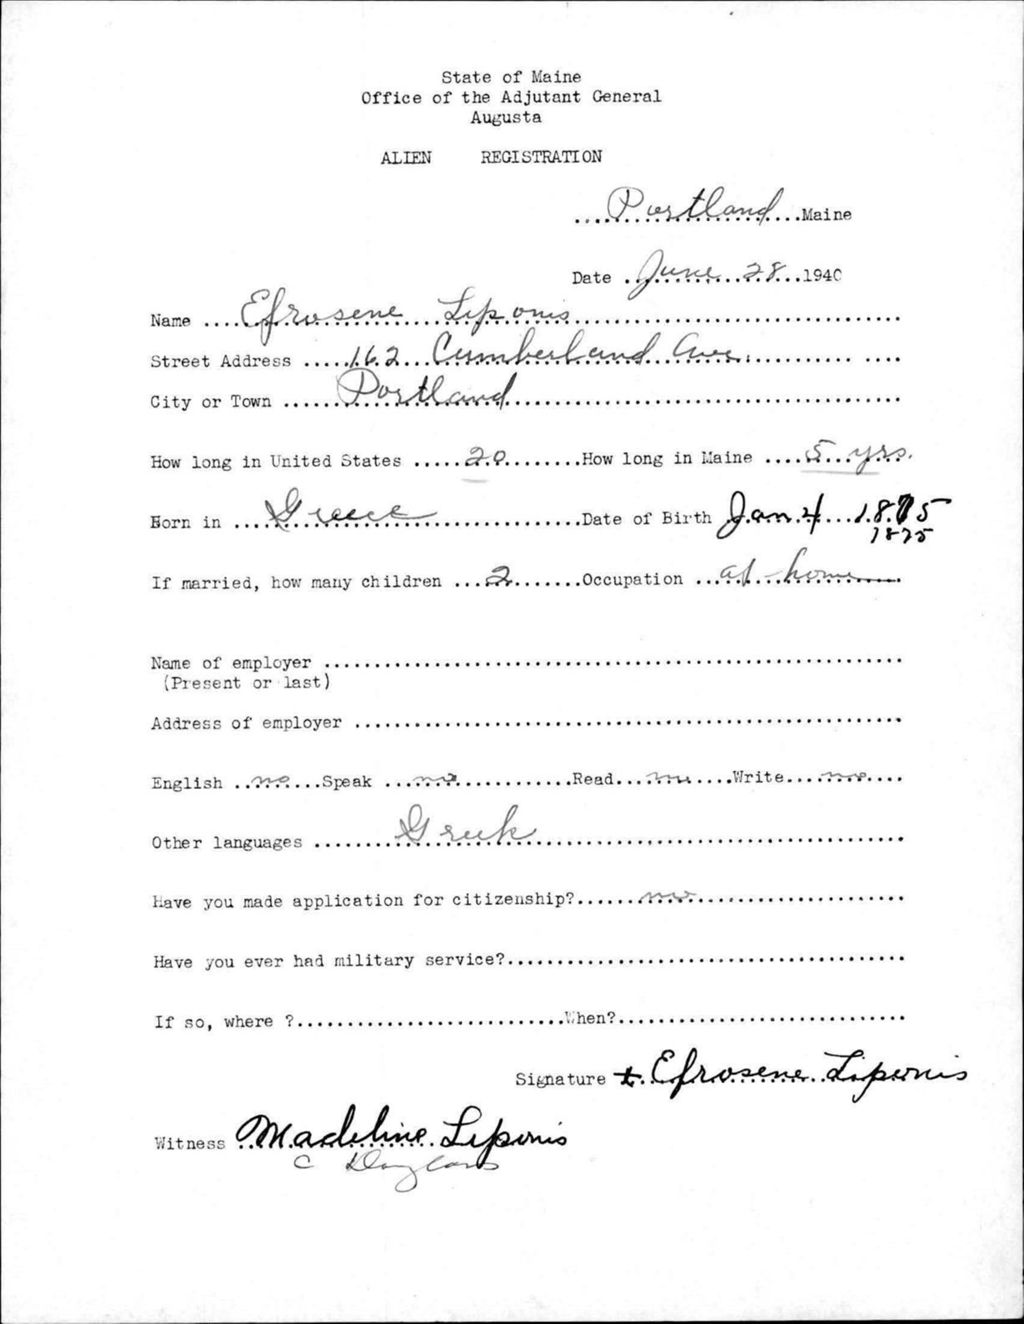 State of Maine
Office of the Adjutant General
Augusta
ALIEN REGISTRATION
Portland Maine
Date June 28 1940
Name Efrosene Liponis
Street Address 162 Cumberland Ave.
City or Town Portland
How long in United States 20 How long in Maine 5 yrs.
Born in Greece Date of Birth Jan 4 1875
1875
If married, how many children 2 Occupation at home
Name of employer
(Present or last)
Address of employer
English no Speak no Read no Write no
Other languages Greek
Have you made application for citizenship? no
Have you ever had military service?
If so, where ? When?
Signature Efrosene Liponis
Witness Madeline Liponis
C